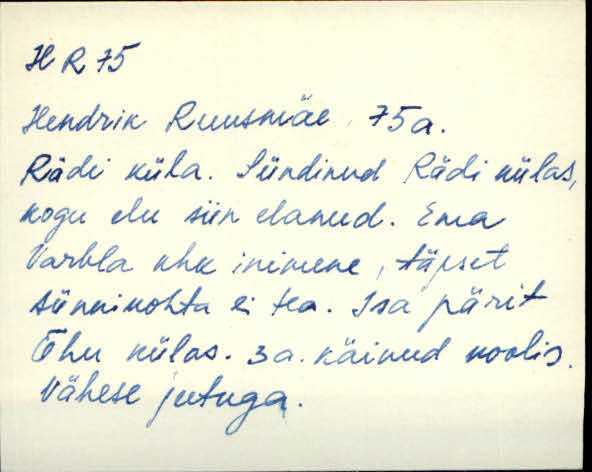 H R 75
Hendrik Ruusmäe, 75 a.
Rädi küla. Sündinud Rädi külas,
kogu elu siin elanud. Ema
Varbla khk inimene, täpset
sünnikohta ei tea. Isa pärit
Õhu külas. 3 a. käinud koolis.
Vähese jutuga.